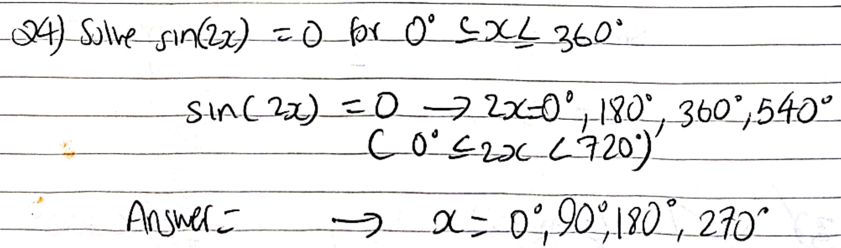 Q4) Solve sin(2x) = 0 for 0° ≤ x ≤ 360°
sin(2x) = 0 → 2x=0°, 180°, 360°, 540°
( 0° ≤ 2x < 720°)
Answer= → x = 0°, 90°, 180°, 270°